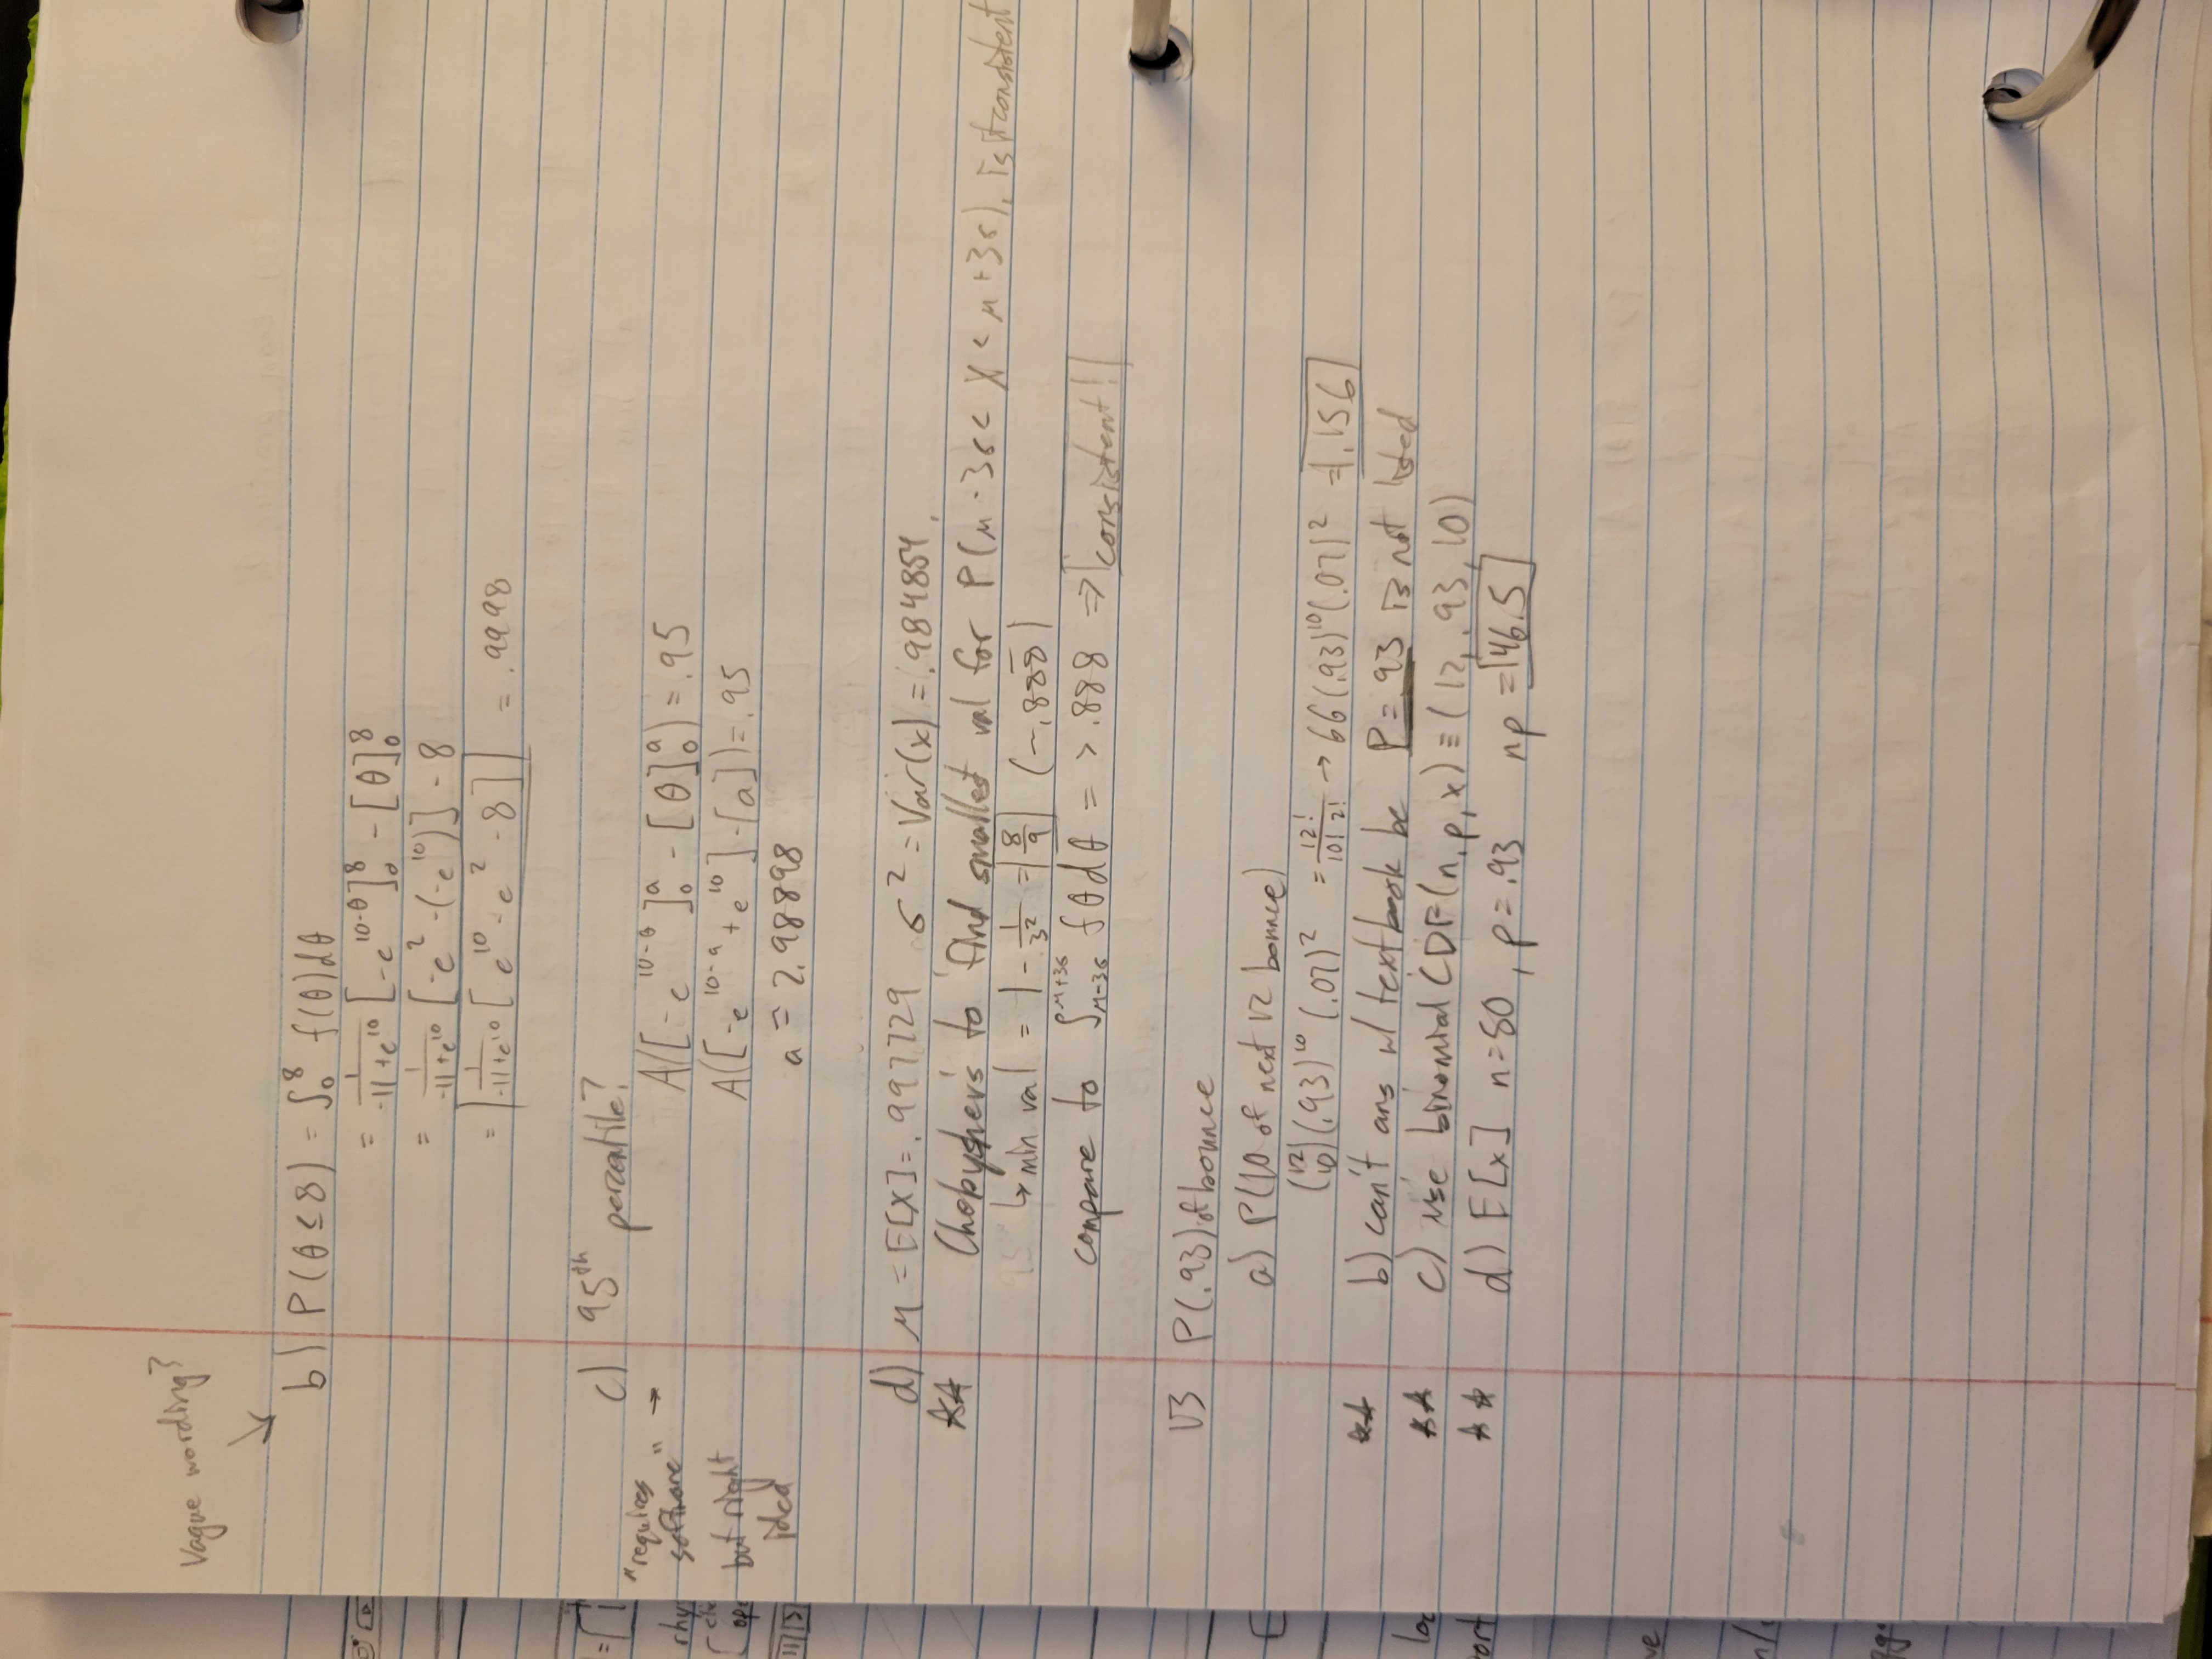 Vague wording?
b) P(θ≤8) = ∫₀⁸ f(θ)dθ
= 1/(-11+e¹⁰) [-e^(10-θ)]₀⁸ - [θ]₀⁸
= 1/(-11+e¹⁰) [-e² -(-e¹⁰)] - 8
= 1/(-11+e¹⁰) [e¹⁰ - e² - 8] = .9998
c) 95th percentile?
"requires software" →
but right idea
A([-e^(10-θ)]₀ᵃ - [θ]₀ᵃ) = .95
A([-e^(10-a) + e¹⁰] - [a]) = .95
a = 2.98898
d) μ = E[X] = .997729 σ² = Var(x) = .984854.
Chebyshev's to find smallest val for P(μ-3σ < X < μ+3σ), is it consistent
↳ min val = 1 - 1/3² = 8/9 (~.888)
compare to ∫_(μ-3σ)^(μ+3σ) fθdθ = > .888 ⇒ consistent!
V3 P(.93) of bounce
a) P(10 of next 12 bounce)
(12 10)(.93)¹⁰ (.07)² = 12!/(10! 2!) → 66(.93)¹⁰(.07)² = .156
b) can't ans w/ textbook bc P=.93 is not listed
c) use binomial CDF(n,p,x) ≡ (12, .93, 10)
d) E[x] n=50, p=.93 np = 46.5